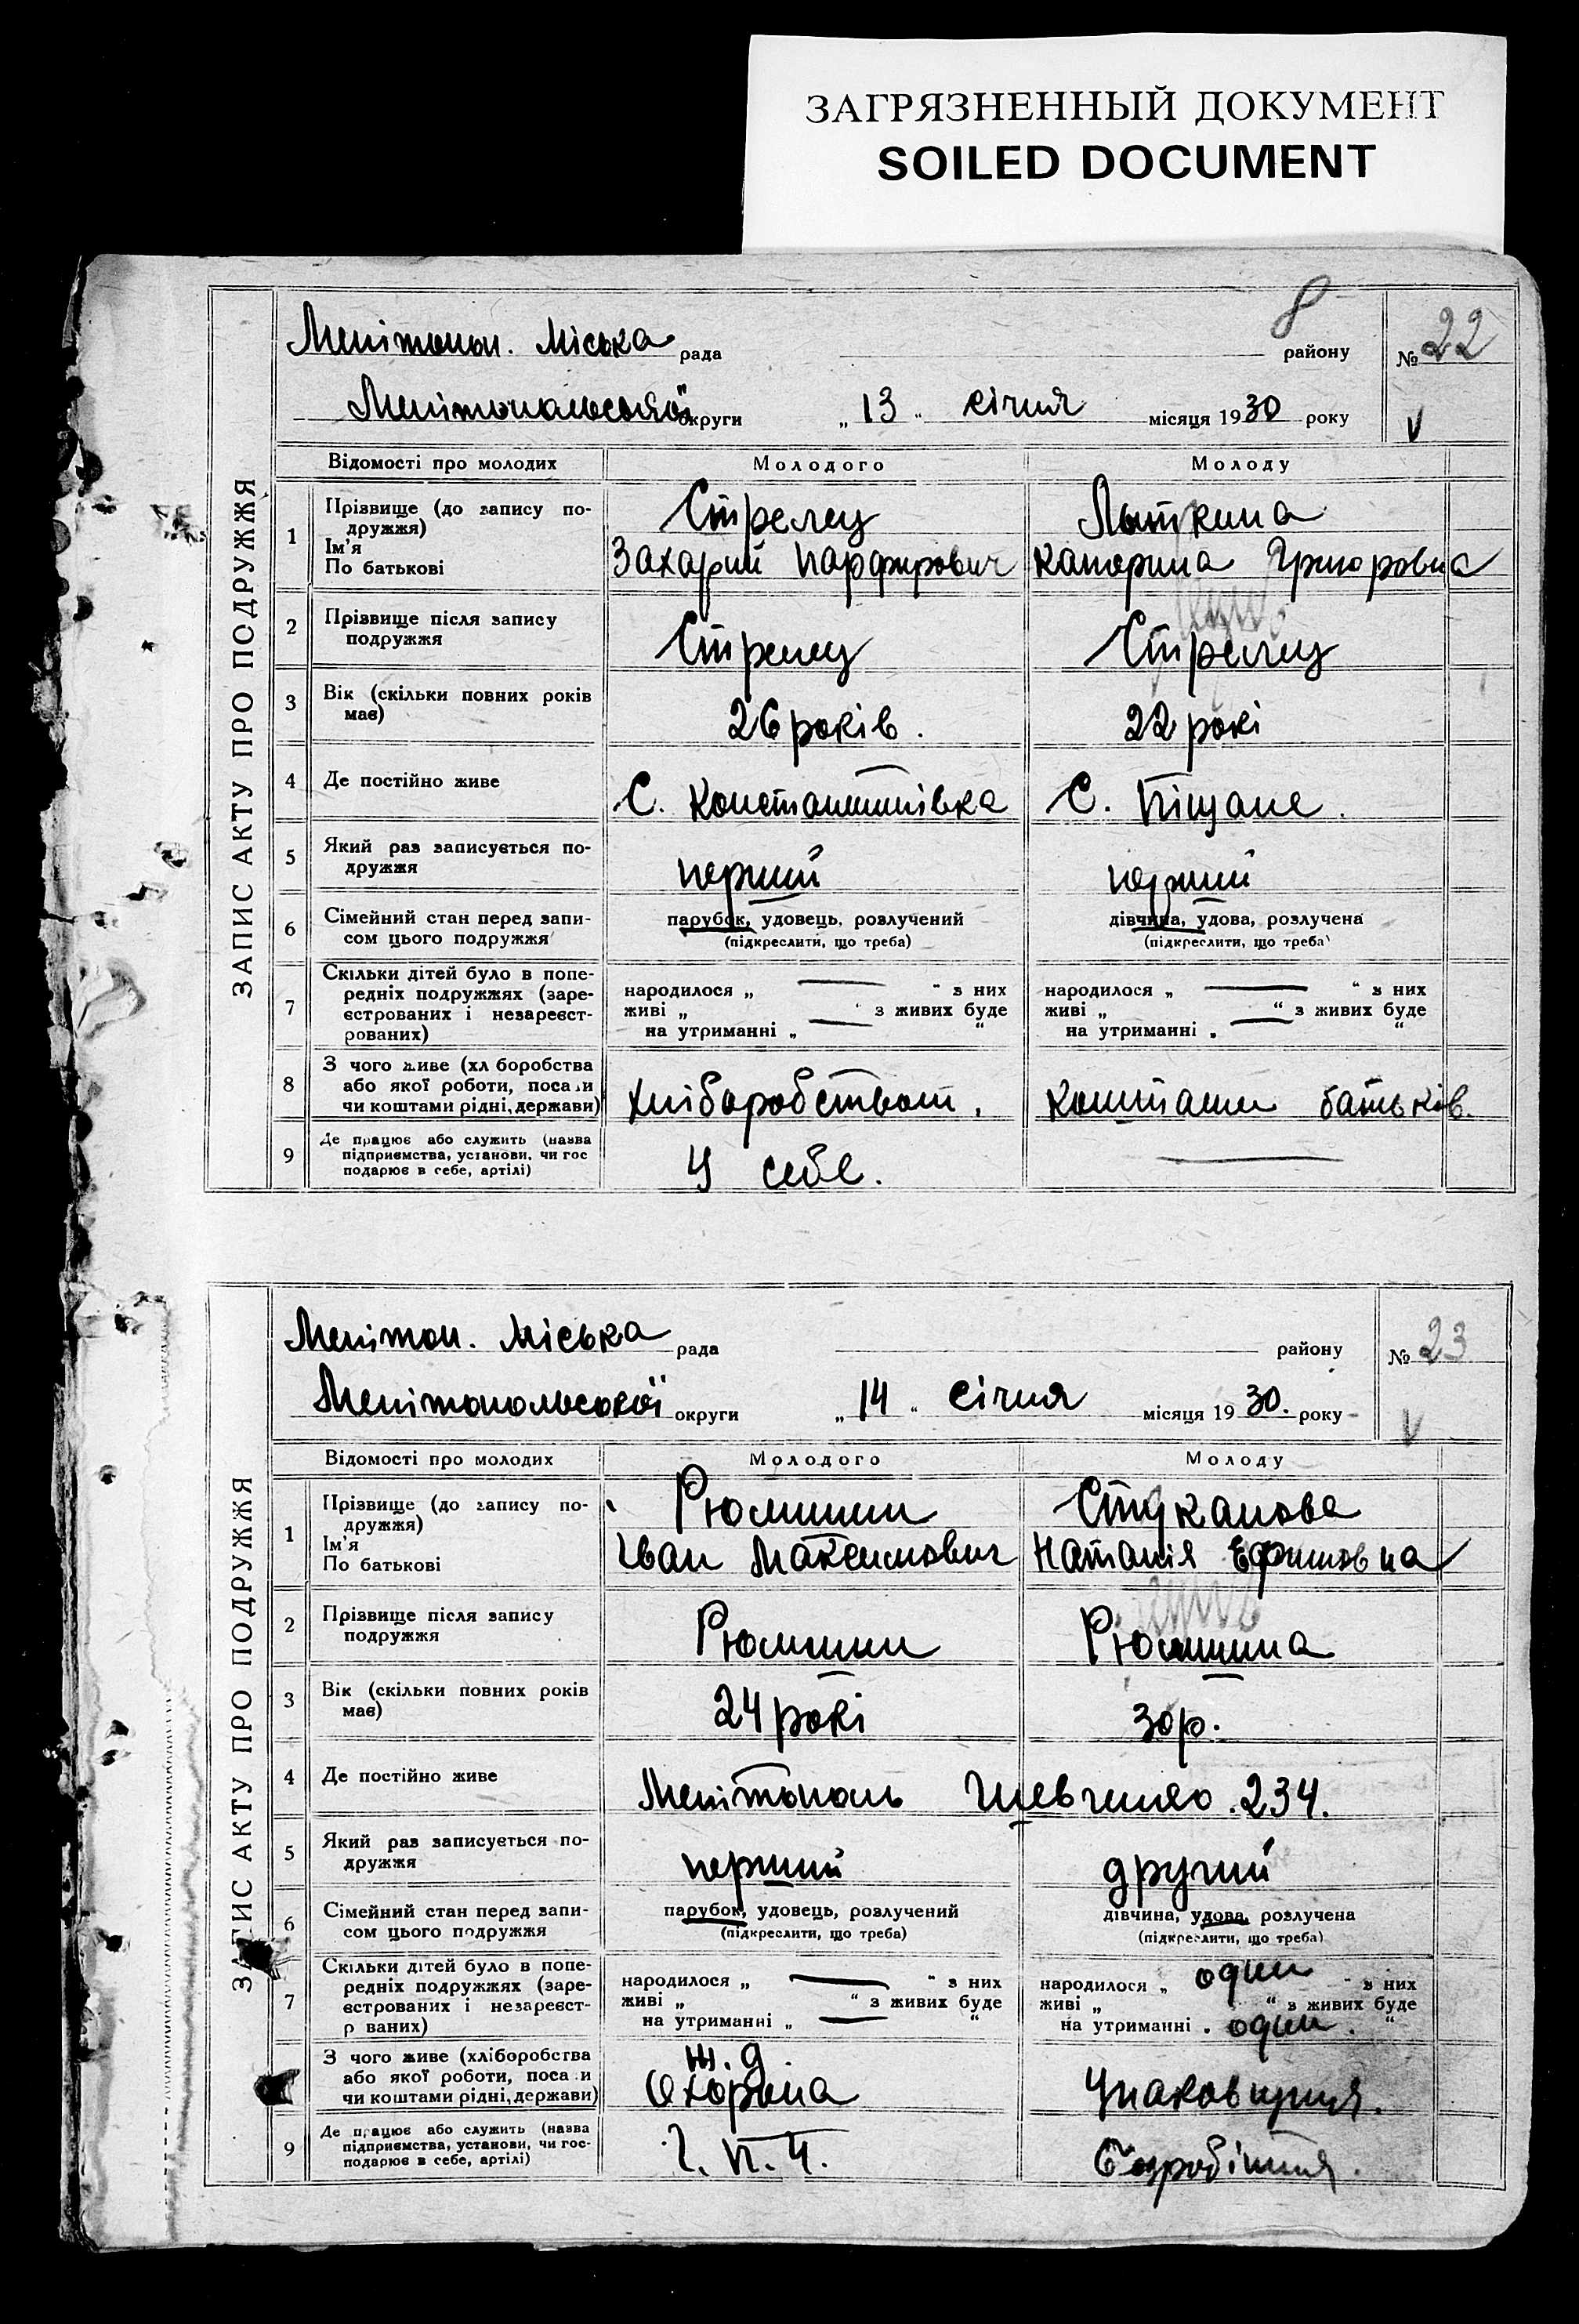 ЗАГРЯЗНЕННЫЙ ДОКУМЕНТ
SOILED DOCUMENT
8
ЗАПИС АКТУ ПРО ПОДРУЖЖЯ
Мелітопол. Міська рада району № 22
Мелітопольської округи „ 13 “ січня місяця 1930 року V
Відомості про молодих Молодого Молоду
1 Прізвище (до запису по- Стрелец Лыткина
дружжя)
Ім'я Захарий Парфирович Катерина Григоровна
По батькові
2 Прізвище після запису Стрелец Стрелец
подружжя
3 Вік (скільки повних років 26 років. 22 рокі
має)
4 Де постійно живе С. Константинівка С. Піщане.
5 Який раз записується по- перший перший
дружжя
6 Сімейний стан перед запи- парубок, удовець, розлучений дівчина, удова, розлучена
сом цього подружжя (підкреслити, що треба) (підкреслити, що треба)
7 Скільки дітей було в попе-
редніх подружжях (заре- народилося „ — “ з них народилося „ — “ з них
єстрованих і незареєст- живі „ “ з живих буде живі „ “ з живих буде
рованих) на утриманні „ — “ на утриманні „ — “
8 З чого живе (хл боробства
або якої роботи, поса и хліборобством. коштами батьків.
чи коштами рідні, держави)
9 Де працює або служить (назва
підприємства, установи, чи гос У себе. —
подарює в себе, артілі)
ЗАПИС АКТУ ПРО ПОДРУЖЖЯ
Мелітоп. Міська рада району № 23
Мелітопольської округи „ 14 “ січня місяця 1930. року V
Відомості про молодих Молодого Молоду
1 Прізвище (до запису по- Рюмшин Стуканова
дружжя)
Ім'я Іван Максимович Наталія Ефимовна
По батькові
2 Прізвище після запису Рюмшин Рюмшина
подружжя
3 Вік (скільки повних років 24 рокі 30 р.
має)
4 Де постійно живе Мелітополь Шевченко. 234.
5 Який раз записується по- перший другий
дружжя
6 Сімейний стан перед запи- парубок, удовець, розлучений дівчина, удова, розлучена
сом цього подружжя (підкреслити, що треба) (підкреслити, що треба)
7 Скільки дітей було в попе-
редніх подружжях (заре- народилося „ — “ з них народилося „ один “ з них
єстрованих і незареєст- живі „ “ з живих буде живі „ “ з живих буде
р ваних) на утриманні „ — “ на утриманні „ один. “
8 З чого живе (хліборобства ж. д.
або якої роботи, поса и Охорона Упаковщиця.
чи коштами рідні, держави)
9 Де працює або служить (назва
підприємства, установи, чи гос- І. П. Ч. безробітня.
подарює в себе, артілі)